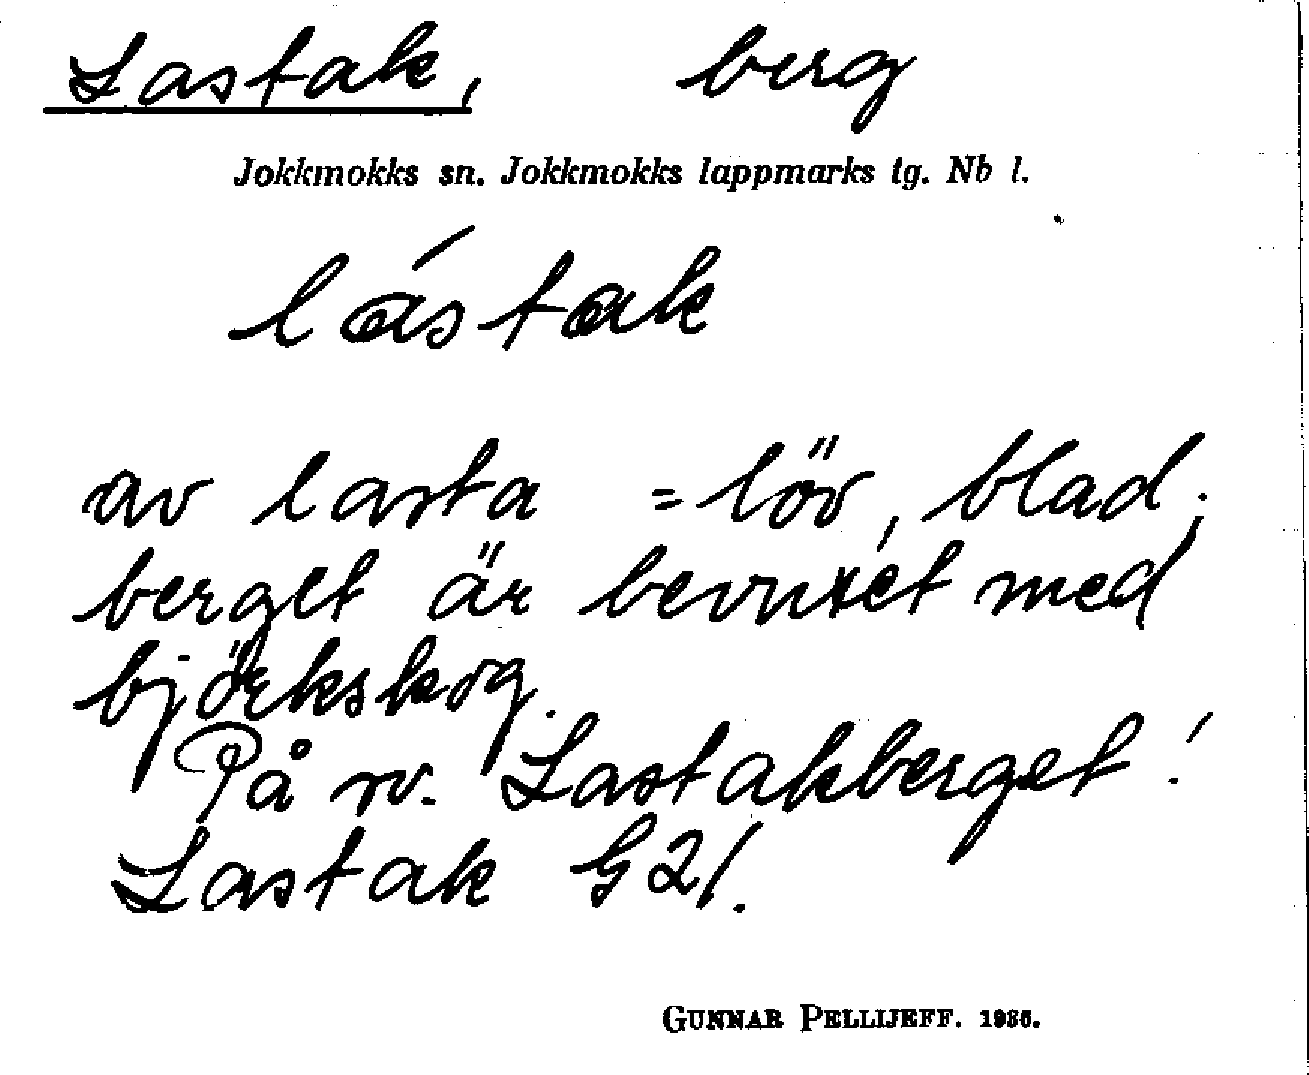 Lastak, berg
Jokkmokks sn. Jokkmokks lappmarks tg. Nb l.
lástak
av lasta = löv, blad;
berget är bevuxet med
björkskog.
På rv. Lastakberget!
Lastak G21.
GUNNAR PELLIJEFF. 1986.